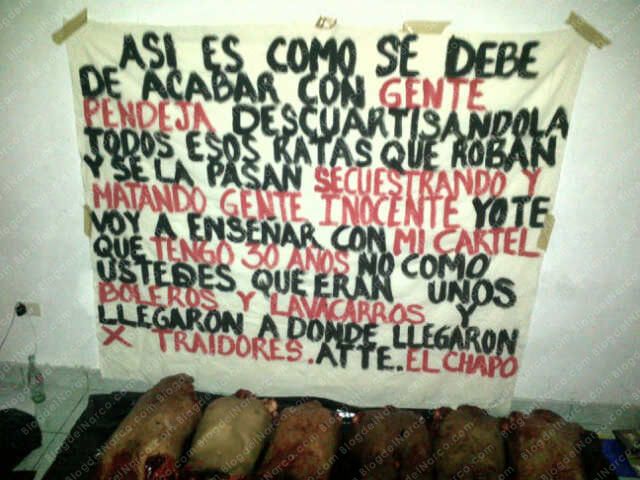 ASI ES COMO SE DEBE
DE ACABAR CON GENTE
PENDEJA DESCUARTISANDOLA
TODOS ESOS RATAS QUE ROBAN
Y SE LA PASAN SECUESTRANDO Y
MATANDO GENTE INOCENTE YOTE
VOY A ENSEÑAR CON MI CARTEL
QUE TENGO 30 AÑOS NO COMO
USTEDES QUE ERAN UNOS
BOLEROS Y LAVACARROS Y
LLEGARON A DONDE LLEGARON
X TRAIDORES. ATTE. EL CHAPO
BlogdelNarco.com